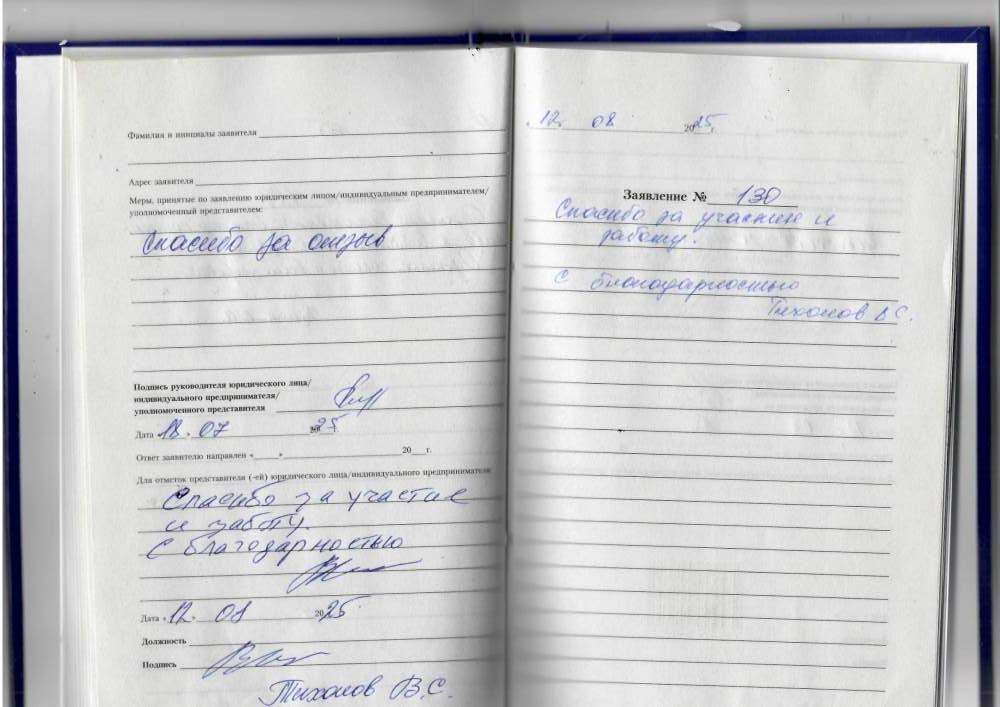 Фамилия и инициалы заявителя
Адрес заявителя
Меры, принятые по заявлению юридическим лицом/индивидуальным предпринимателем/
уполномоченный представителем:
Спасибо за отзыв
Подпись руководителя юридического лица/
индивидуального предпринимателя/
уполномоченного представителя
Дата «18» 07 2025
Ответ заявителю направлен «____» 20__г.
Для отметок представителя (-ей) юридического лица/индивидуального предпринимателя
Спасибо за участие
и заботу.
С благодарностью
Дата «12» 08 2025
Должность
Подпись
Тихонов В.С.
12 08 2025г.
Заявление № 130
Спасибо за участию и
заботу.
С благодарностью
Тихонов В С.